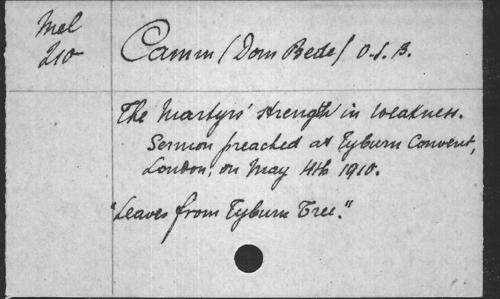 Mel
210
Camm (Dom Bede) O.S.B.
The Martyrs' strength in weakness.
Sermon preached at Tyburn Convent,
London, on May 4th 1910.
"Leaves from Tyburn Tree."